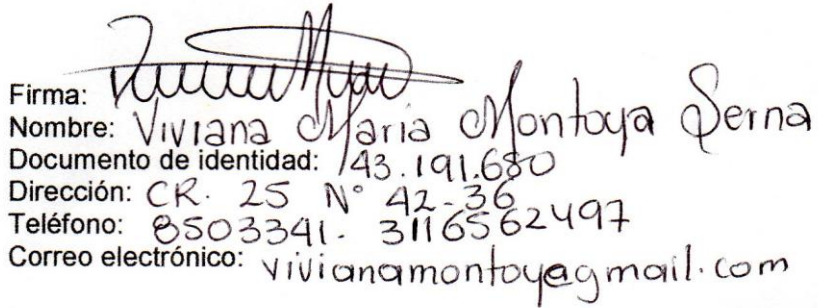 Firma:
Nombre: Viviana Maria Montoya Serna
Documento de identidad: 43.191.680
Dirección: CR. 25 N° 42-36
Teléfono: 8503341 - 3116562497
Correo electrónico: vivianamontoy@gmail.com